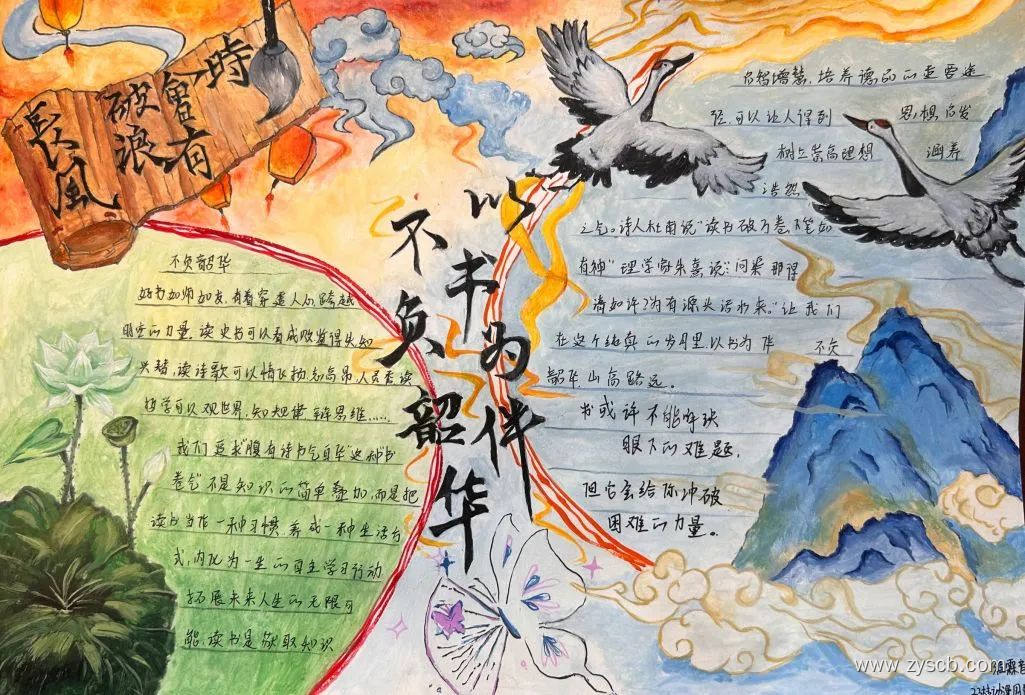 長風
破浪
會有
時
以书为伴
不负韶华
不负韶华
好书如师如友,有着穿透人心跨越
时空的力量。读史书可以看成败鉴得失知
兴替,读诗歌可以情飞扬志高昂人灵秀读
哲学可以观世界,知规律辩思维……
我们追求"腹有诗书气自华"这种书
卷气不是知识的简单叠加,而是把
读书当作一种习惯,养成一种生活方
式,内化为一生的自主学习行动
拓展未来人生的无限可
能,读书是获取知识
启智增慧,培养德的重要途
径,可以让人得到 思想启发
树立崇高理想 涵养
浩然
之气。诗人杜甫说"读书破万卷下笔如
有神"理学家朱熹说:"问渠那得
清如许?为有源头活水来。"让我们
在这个纯真的岁月里,以书为伴 不负
韶华,山高路远。
书或许不能解决
眼下的难题,
但它会给你冲破
困难的力量。
www.zyscb.com